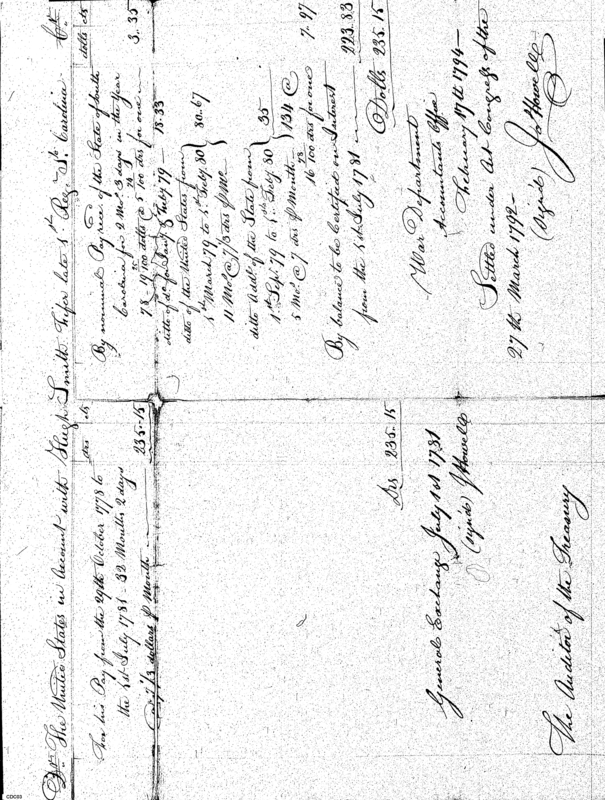 Dr. The United States in Account with Hugh Smith fifer late 1st Reg. So. Carolina Cr.
drs cts
For his Pay from the 29th October 1778 to
the 1st July 1781 - 32 Months 2 days
@ 7 1/3 dollars P Month 235.15
Drs 235.15
General Exchange July 1st 1781
(signed) J Howell
The Auditor of the Treasury
dolls cts
By nominal Pay rec'd of the State of South
Carolina for 2 Mos. 3 days in the Year
78 100 dolls @ 5 100 drs for one 3.35
ditto of do for Jany & Feby 79 - 13.33
ditto of the United States from
1st March 79 to 1st Feby 80 80.67
11 Mos. @ 7 1/3 drs P Mo.
ditto Addl. of the State from
1st Sept. 79 to 1st Feby 80 35
5 Mos. @ 7 drs P Month 134 @
16 100 drs for one 7.97
By balance to be Certified on Interest
from the 1st July 1781 223.83
Dolls 235.15
War Department
Accountants Office
February 17th 1794
Settled under Act Congress of the
27th March 1792 -
(signed) Jo Howell
CDC03